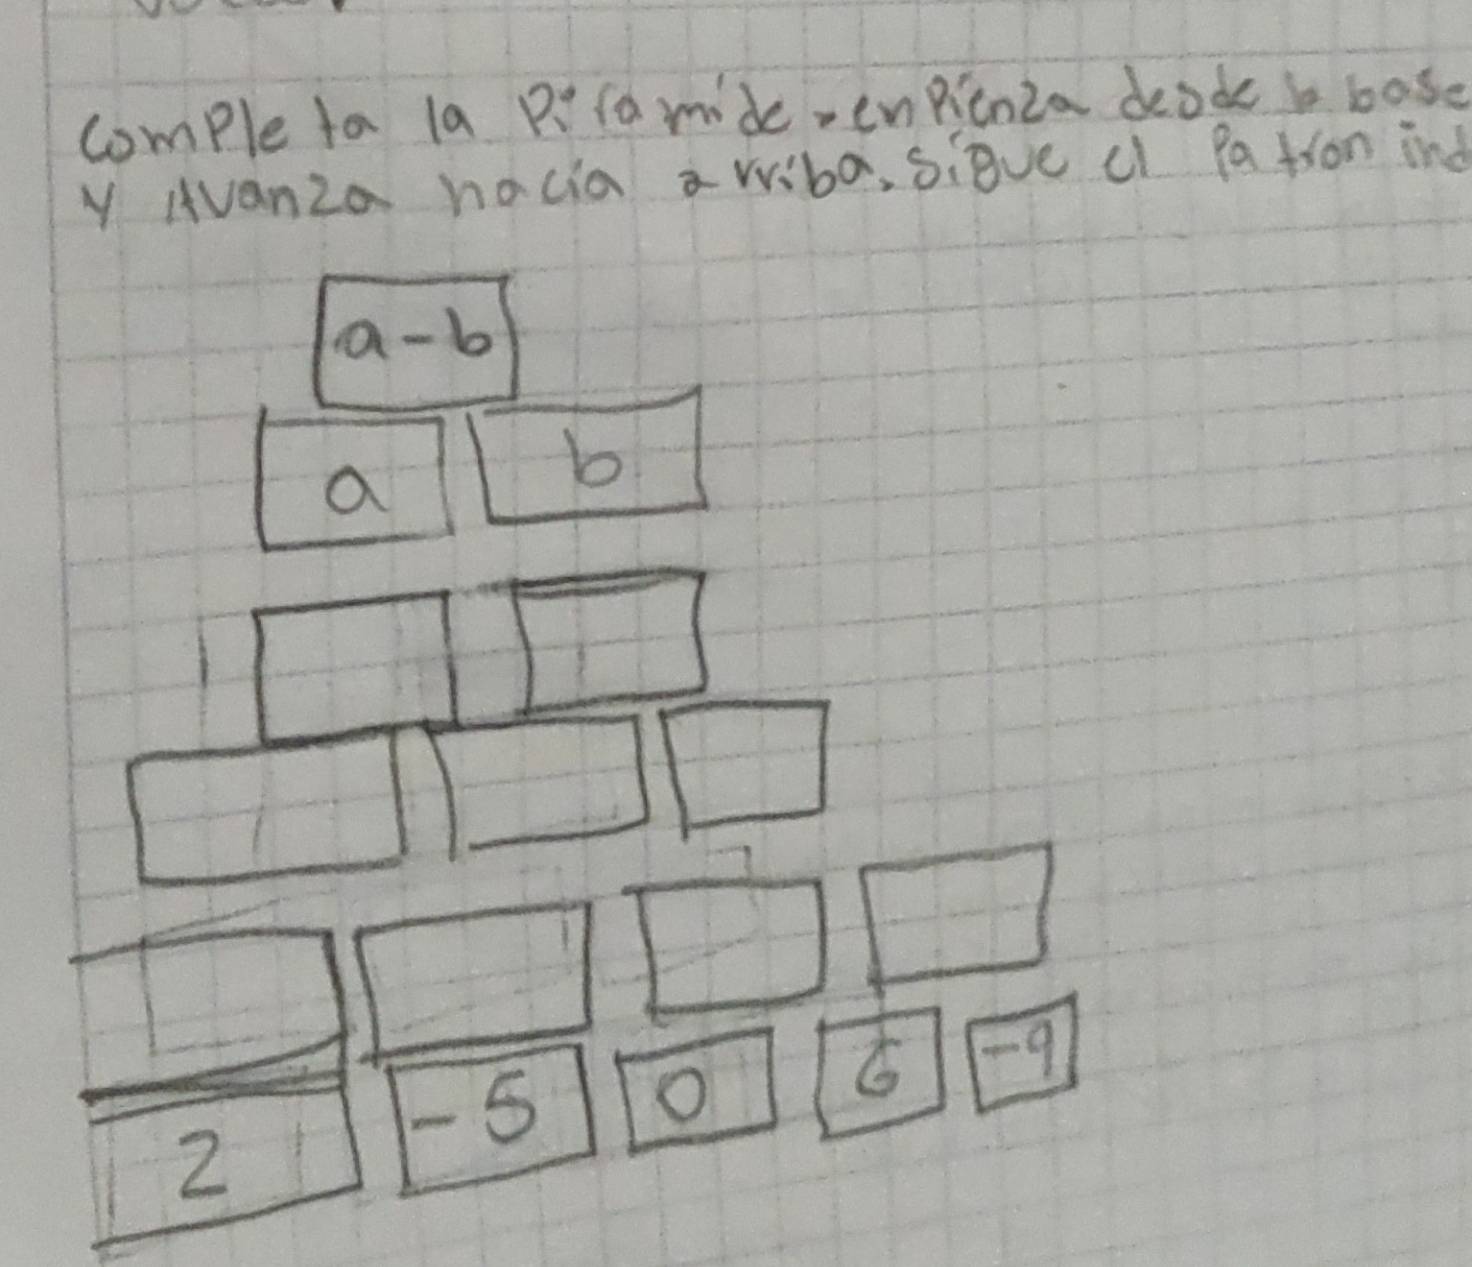 comPleta la Piramide. enPienza desde la base
y Avanza hacia arriba. sigue el Patron ind
a-b
a b
2 -5 0 6 -9